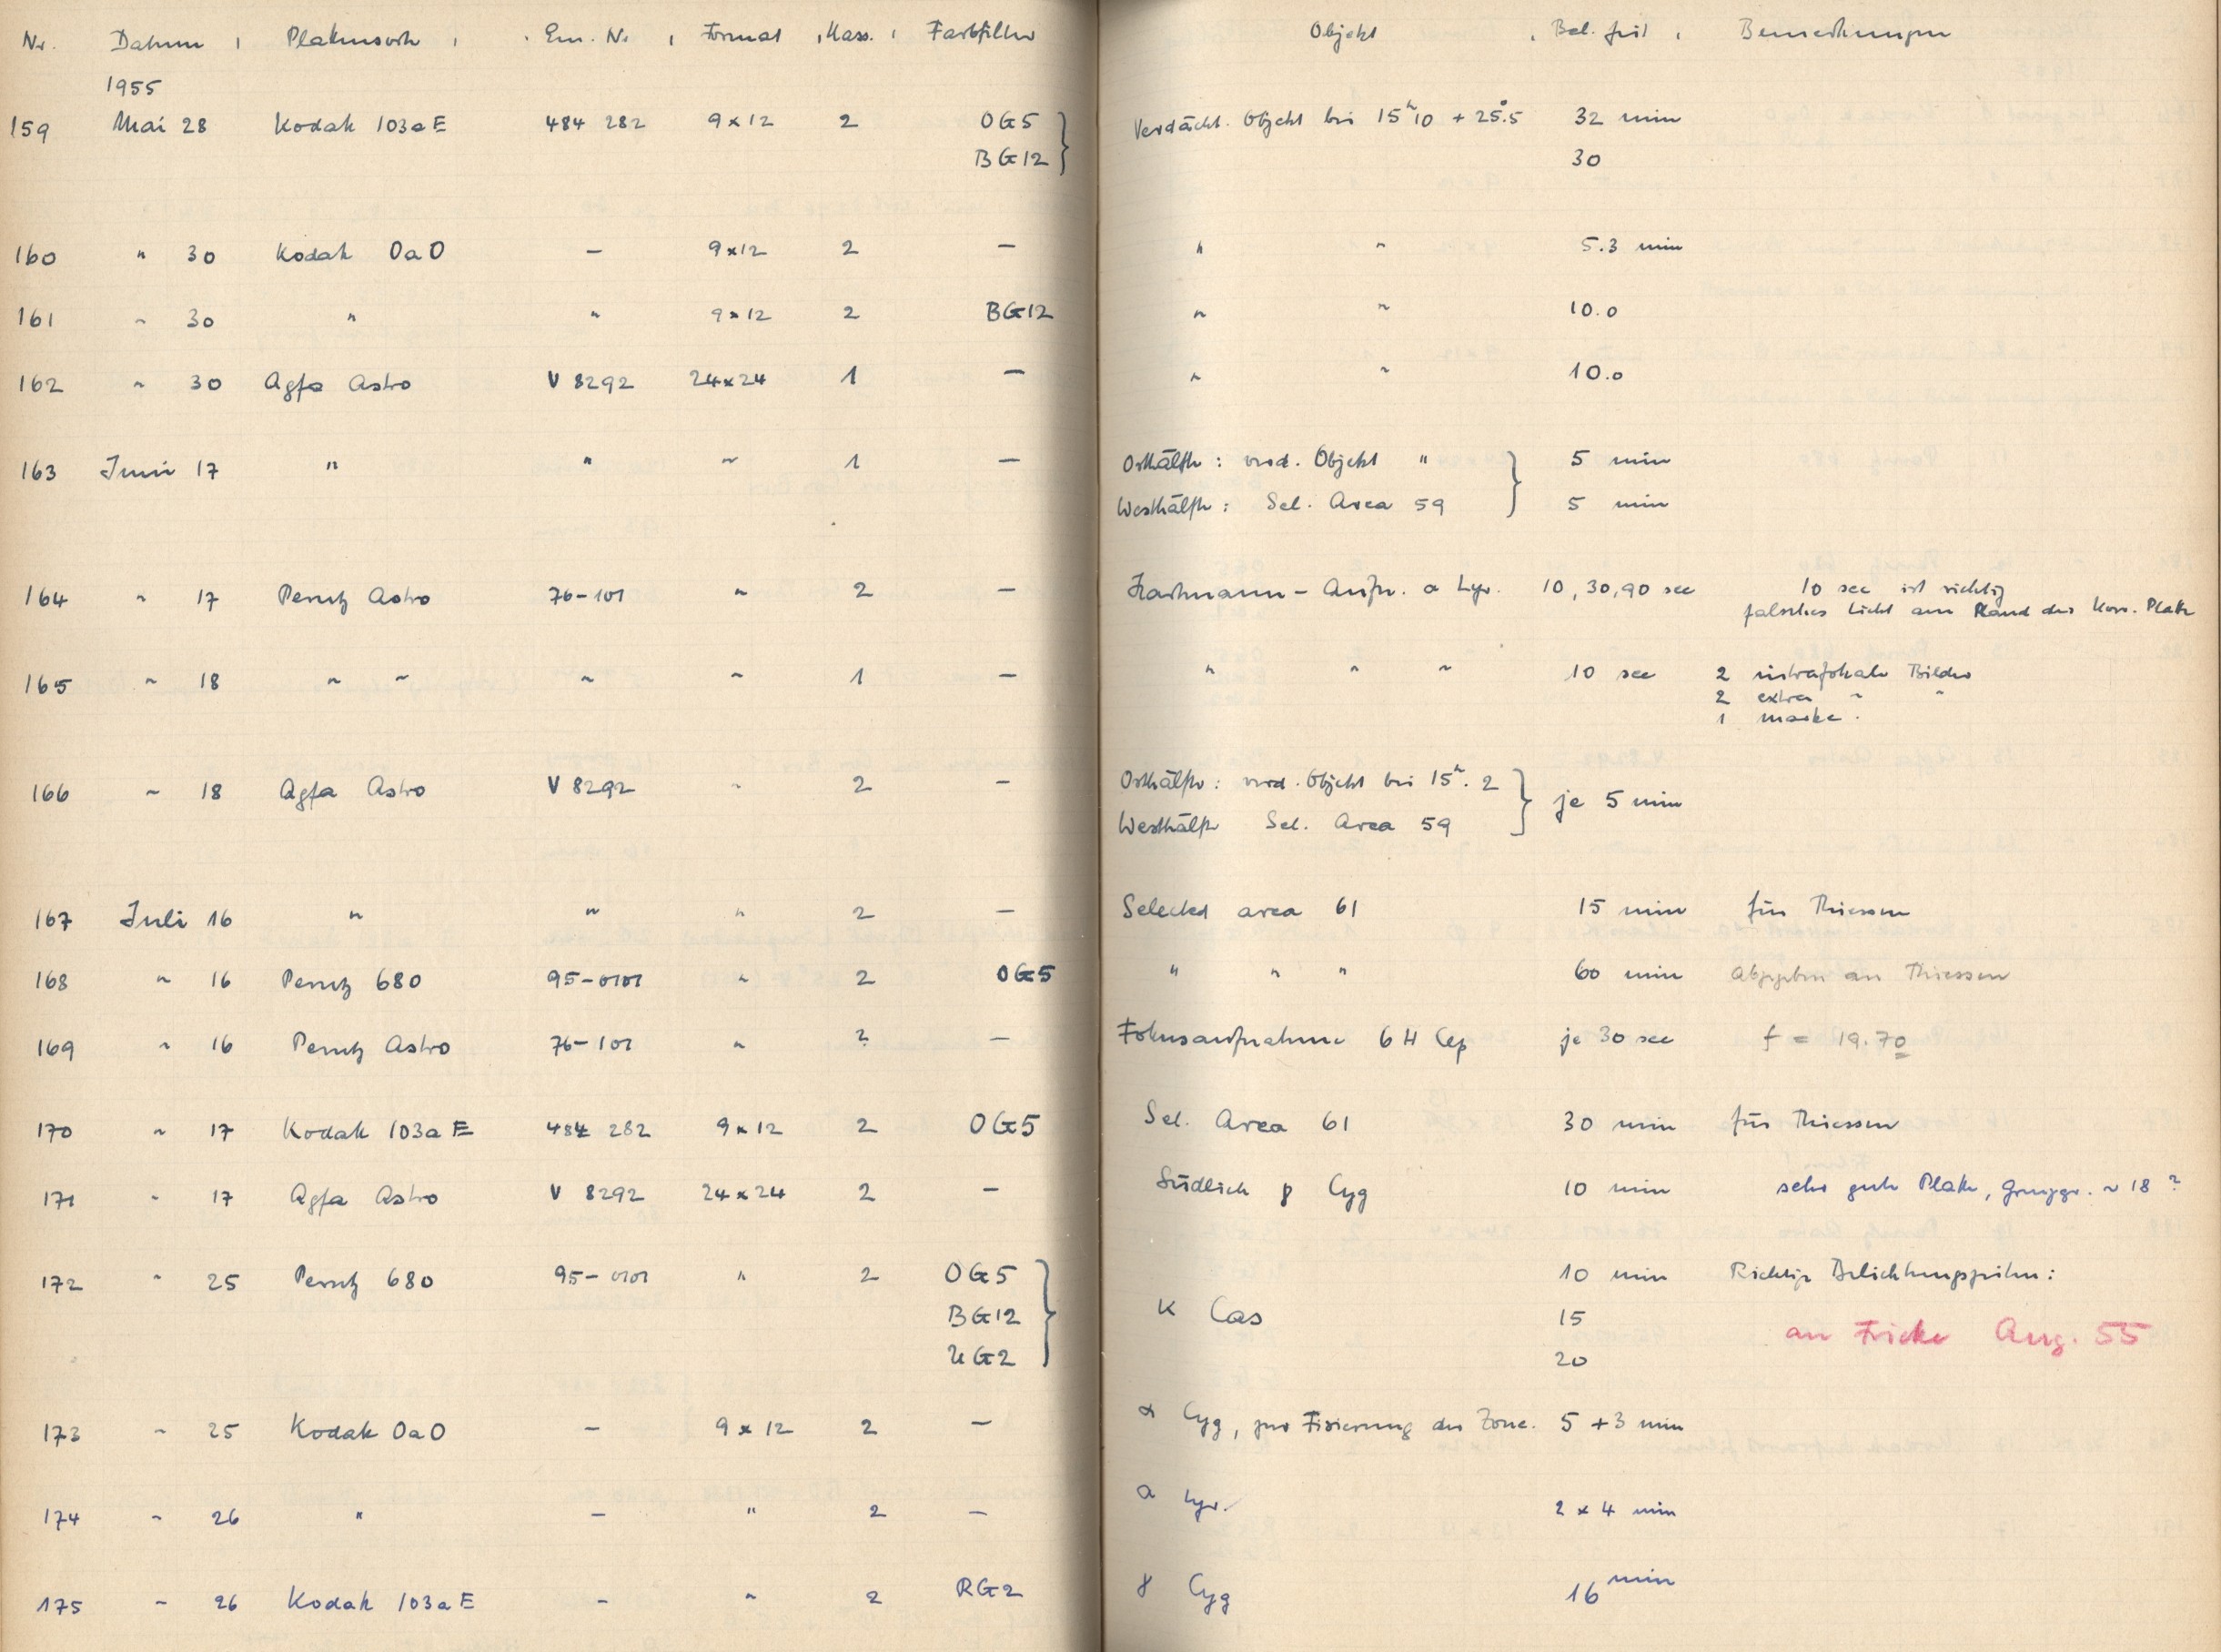 Nr. Datum , Plattensorte , Em. Nr , Format , Kass. , Farbfilter Objekt , Bel. zeit , Bemerkungen
1955
159 Mai 28 Kodak 103aE 484 282 9x12 2 OG5 Verdächt. Objekt bei 15ʰ10 + 25°.5 32 min
BG12 30
160 " 30 Kodak OaO – 9x12 2 – " " 5.3 min
161 " 30 " " 9x12 2 BG12 " " 10.0
162 " 30 Agfa Astro V 8292 24x24 1 – " " 10.0
163 Juni 17 " " " 1 – Osthälfte : verd. Objekt " 5 min
Westhälfte : Sel. Area 59 5 min
164 " 17 Perutz Astro 76-101 " 2 – Hartmann – Aufn. α Lyr. 10, 30, 90 sec 10 sec ist richtig
falsches Licht am Rand der Korr. Platte
165 " 18 " " " " 1 – " " " 10 sec 2 intrafokale Bilder
2 extra " "
1 marke.
166 " 18 Agfa Astro V 8292 " 2 – Osthälfte : verd. Objekt bei 15ʰ.2 je 5 min
Westhälfte Sel. Area 59
167 Juli 16 " " " 2 – Selected area 61 15 min für Thiessen
168 " 16 Perutz 680 95-0101 " 2 OG5 " " " 60 min Abgegeben an Thiessen
169 " 16 Perutz Astro 76-101 " 2 – Fokusaufnahme 6 H Cep je 30 sec f = 19.70
170 " 17 Kodak 103a E 484 282 9x12 2 OG5 Sel. Area 61 30 min für Thiessen
171 " 17 Agfa Astro V 8292 24x24 2 – Südlich γ Cyg 10 min sehr gute Platte, Grenzgr. ~ 18 ?
172 " 25 Perutz 680 95-0101 " 2 OG5 10 min Richtige Belichtungszeiten :
BG12 κ Cas 15 an Fricke Aug. 55
UG2 20
173 " 25 Kodak OaO – 9x12 2 – α Cyg, zur Fixierung der Zone. 5 + 3 min
174 " 26 " – " 2 – α Lyr. 2 x 4 min
175 " 26 Kodak 103a E – " 2 RG2 γ Cyg 16 min